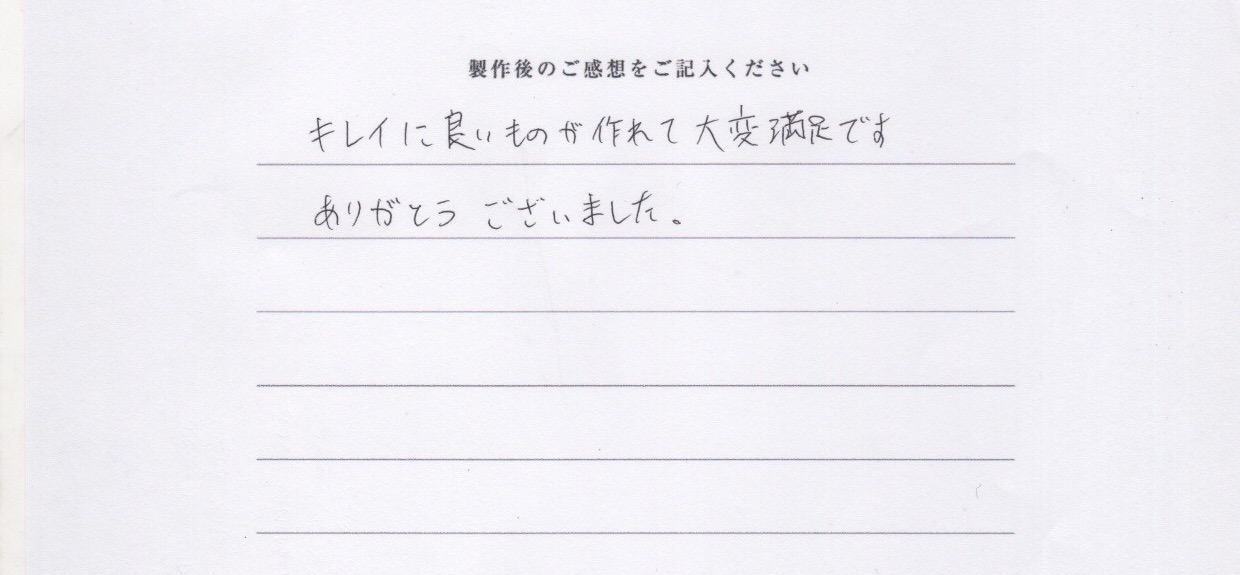 製作後のご感想をご記入ください
キレイに良いものが作れて大変満足です
ありがとうございました。